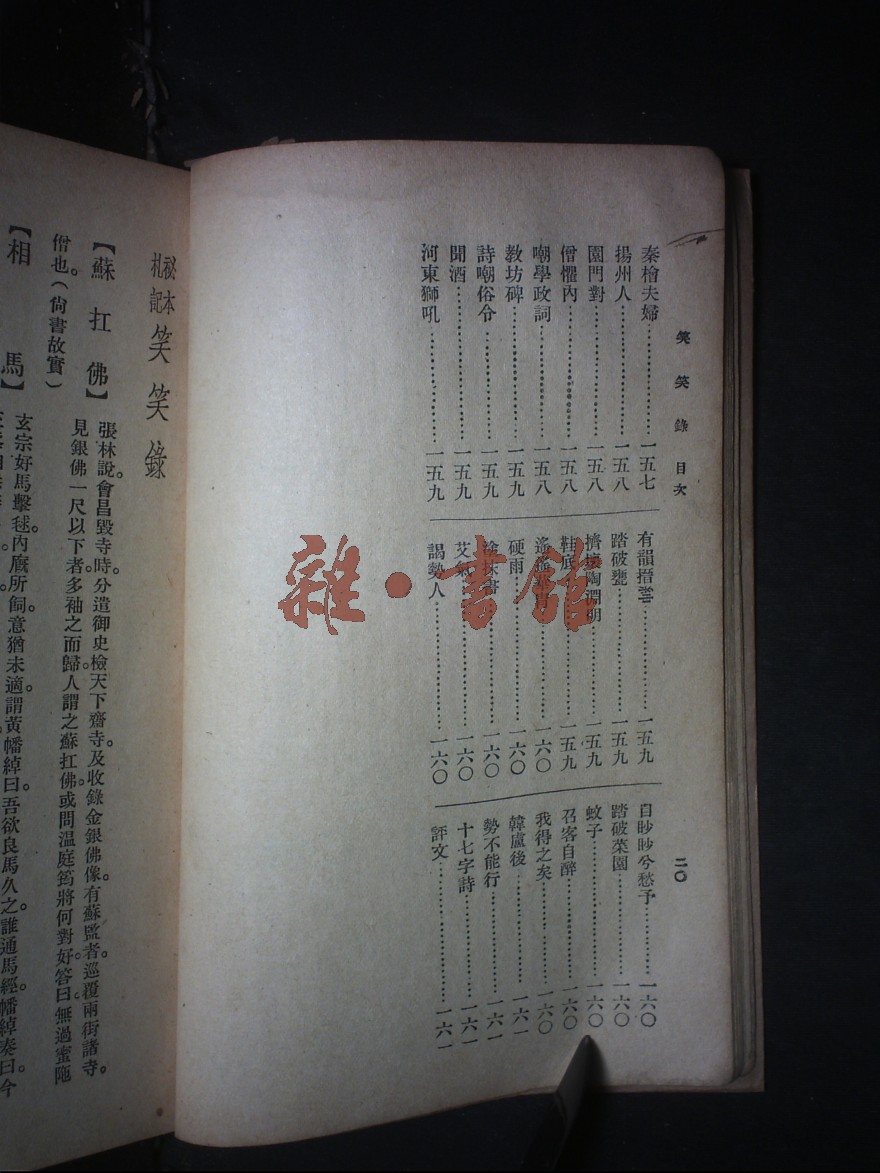 笑笑錄 目次
二〇
秦檜夫婦……一五七
揚州人……一五八
園門對……一五八
僧懼內……一五八
嘲學政詞……一五八
教坊碑……一五九
詩嘲俗令……一五九
聞酒……一五九
河東獅吼……一五九
有韻搢
踏破甕……一五九
擠壞陶淵明……一五九
鞋底……一五九
一六〇
硬雨……一六〇
抹書……一六〇
艾氣……一六〇
謁勢人……一六〇
目眇眇兮愁予……一六〇
踏破菜園……一六〇
蚊子……一六〇
召客自醉……一六〇
我得之矣……一六〇
韓盧後……一六一
勢不能行……一六一
十七字詩……一六一
評文……一六一
雜·書館
秘本札記 笑笑錄
【蘇扛佛】
張林說。會昌毀寺時。分遣御史檢天下齋寺。及收錄金銀佛像。有蘇監者。巡覆兩街諸寺。
見銀佛一尺以下者。多袖之而歸。人謂之蘇扛佛。或問温庭筠將何對好。答曰。無過蜜陁
僧也。(尙書故實)
【相馬】
玄宗好馬擊毬。內廐所飼。意猶未適。謂黃幡綽曰。吾欲良馬久之。誰通馬經。幡綽奏曰。今